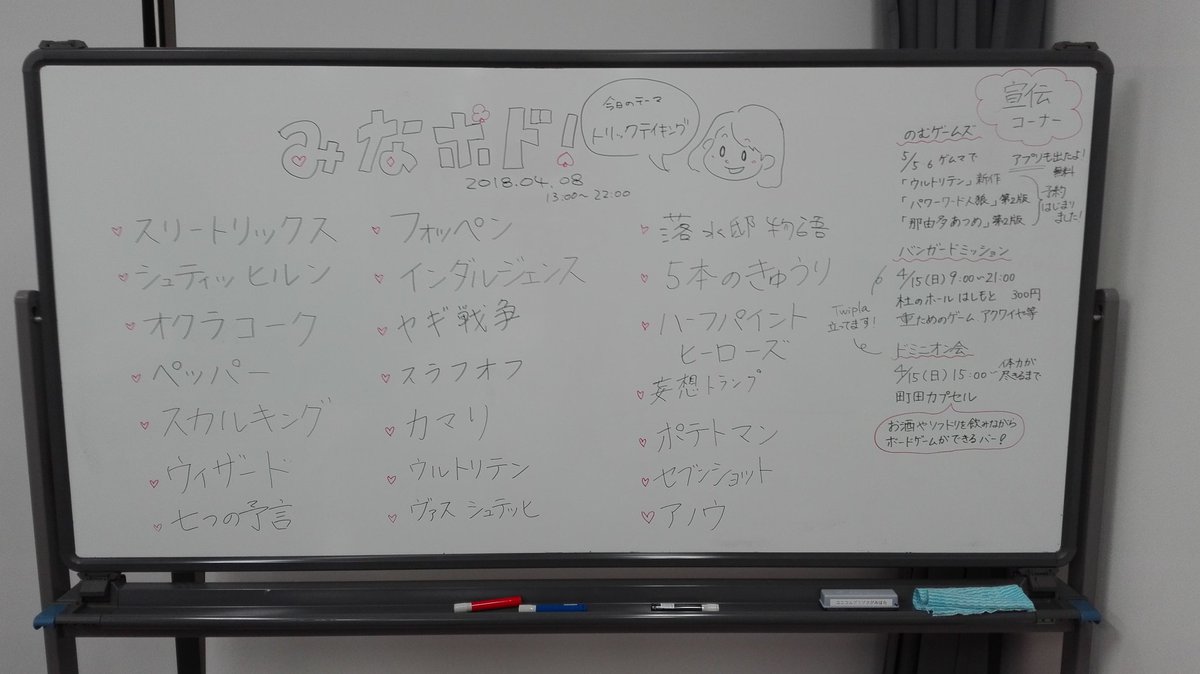 みなボド!
2018.04.08
13:00〜22:00
今日のテーマ
トリックテイキング
スリートリックス
シュティッヒルン
オクラコーク
ペッパー
スカルキング
ウィザード
七つの予言
フォッペン
インダルジェンス
ヤギ戦争
スラフオフ
カマリ
ウルトリテン
ヴァス シュテッヒ
落水邸物語
5本のきゅうり
ハーフパイント
ヒーローズ
妄想トランプ
ポテトマン
セブンショット
アノウ
宣伝
コーナー
のむゲームズ
5/5 6 ゲムマで
アプリも出たよ!
無料
「ウルトリテン」新作
「パワーワード人狼」第2版
「那由多あつめ」第2版
予約
はじまり
ました!
バンガードミッション
4/15(日) 9:00〜21:00
杜のホールはしもと 300円
重ためのゲーム、アクワイヤ等
Twipla
立ってます!
ドミニオン会
4/15(日) 15:00〜体力が
尽きるまで
町田カプセル
お酒やソフドリを飲みながら
ボードゲームができるバー!